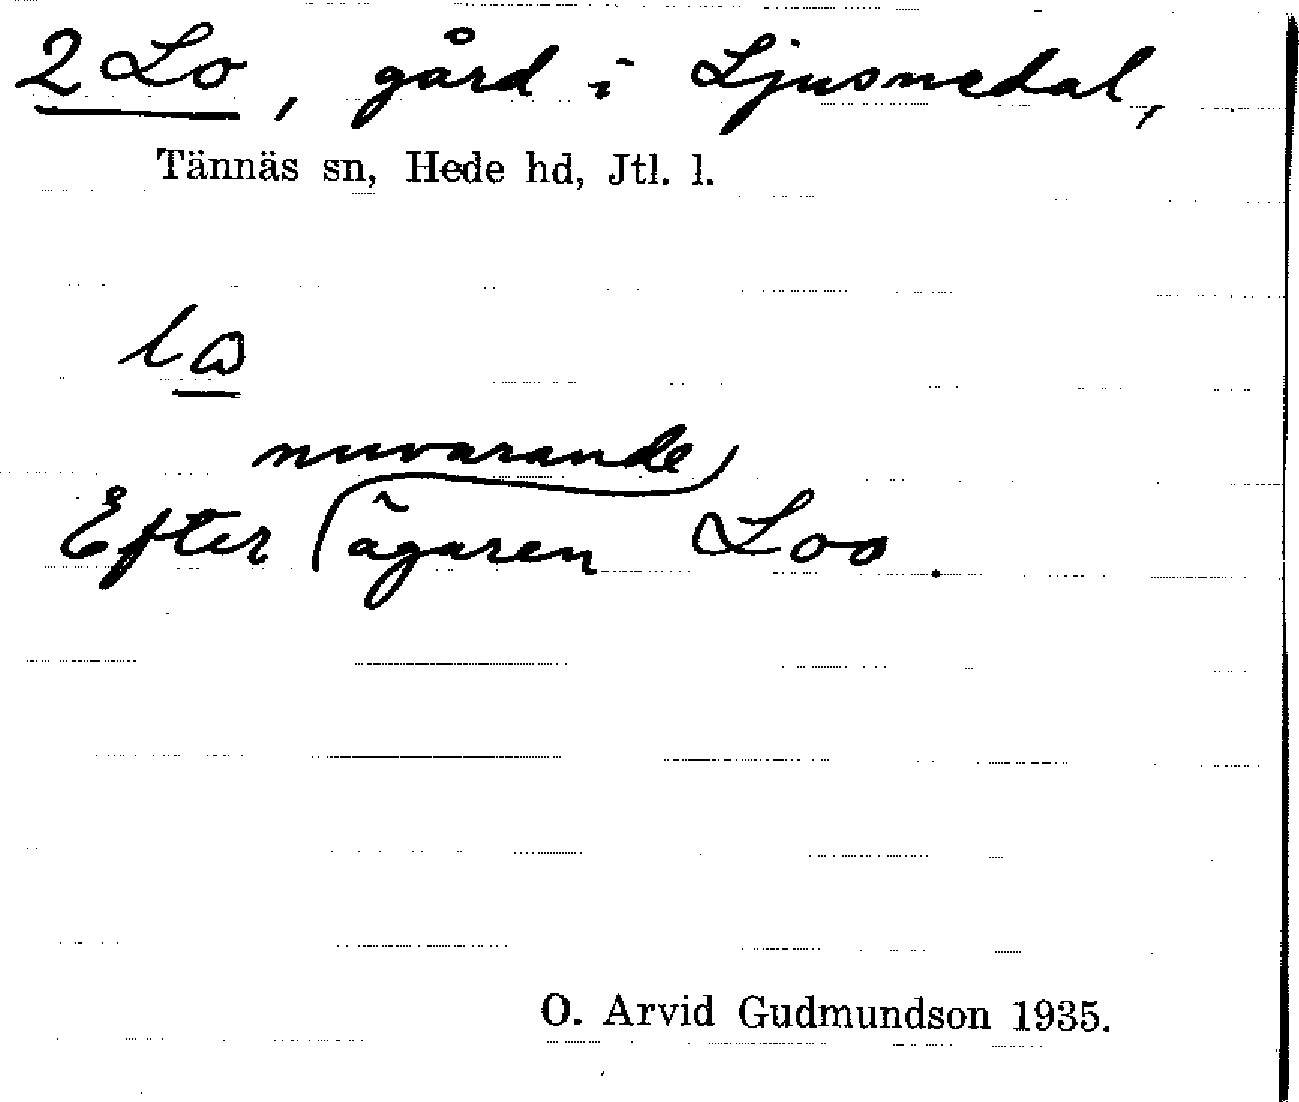 2 Lo, gård i Ljusnedal,
Tännäs sn, Hede hd, Jtl. l.
nuvarande
Efter ägaren Loo.
O. Arvid Gudmundson 1935.